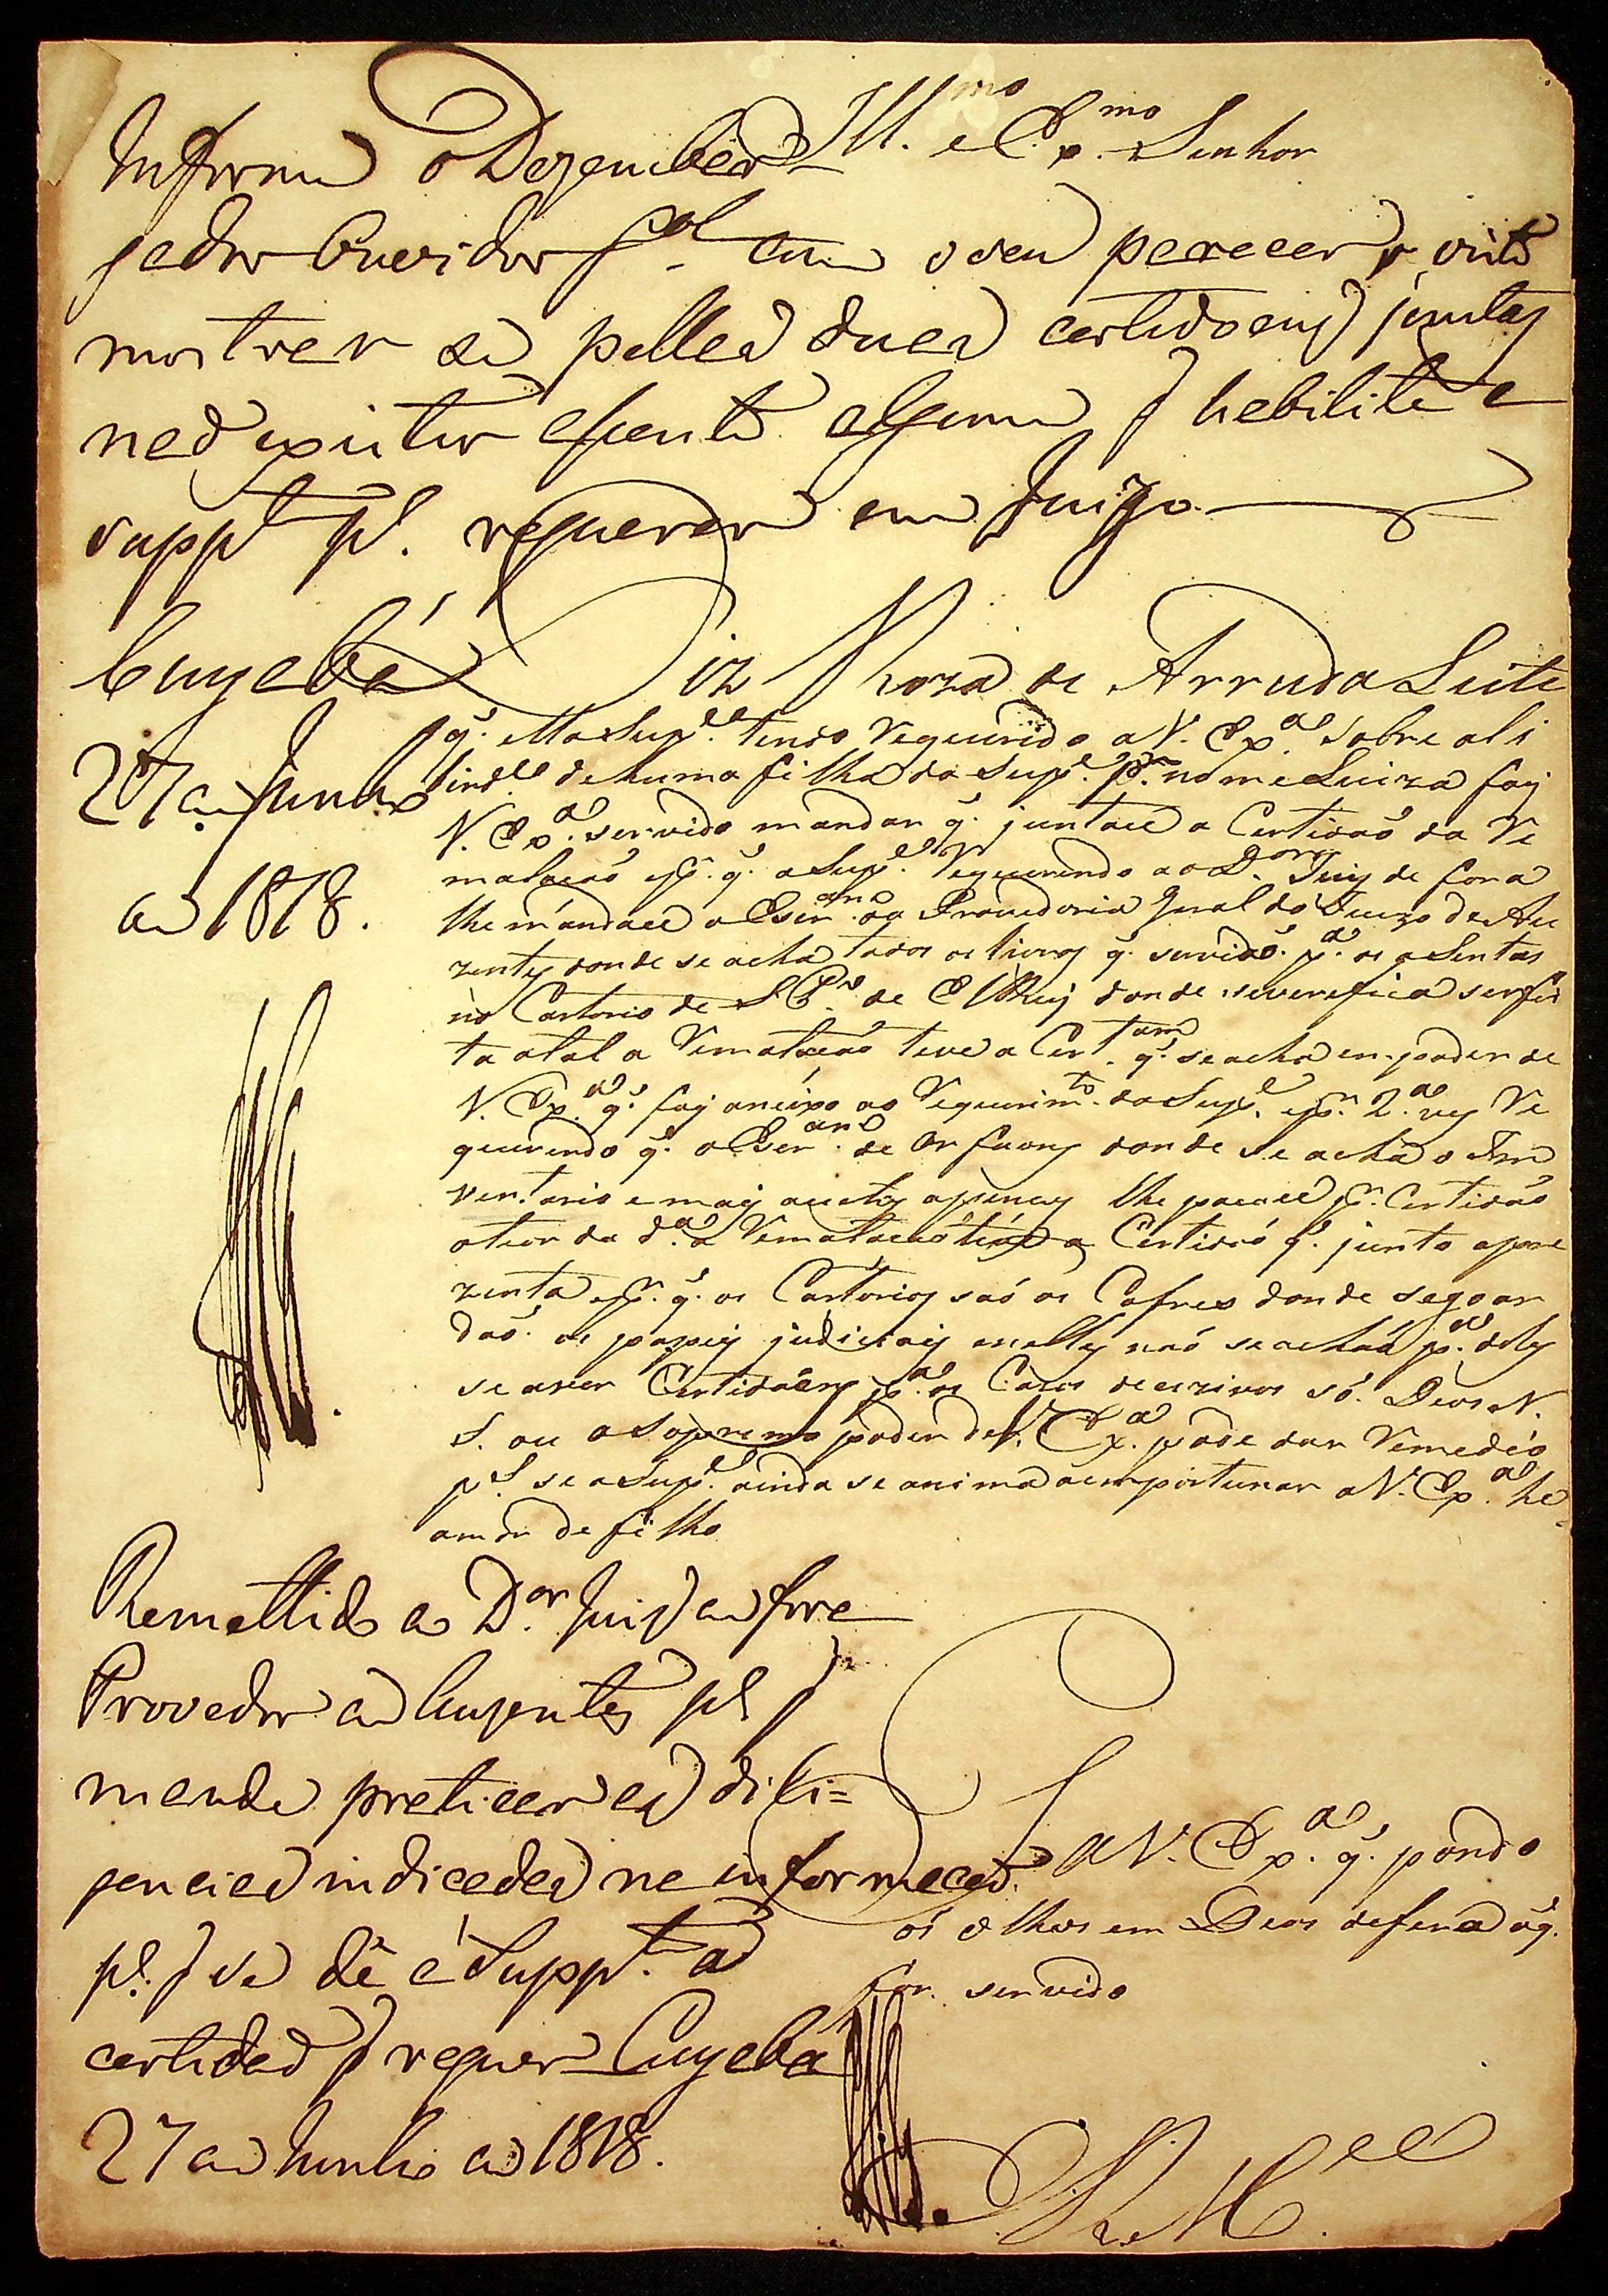 Ill.mo e Ex.mo Senhor
Informe o Dezembar
gador Ouvidor g.al com o seu parecer, visto
mostrar se pellas duas certidoens juntas
naõ existir assento algum q habilite a
Supp.te p.a requerer em Juizo.
Cuyabá
27 de Junho
de 1818.
Diz Roza de Arruda Leite
q. ella Sup.e tendo Requerido a V. Ex.a sobre a li
berd.e de huma filha da Sup.e p.r nome Luiza foi
V. Ex.a servido mandar q. juntace a Certidaõ da Re
mataçaõ p.r q. a Sup.e Requerendo ao D.or Juiz de fora
lhe mandace o Escr.am da Provedoria Geral do Juizo de Au
zentes donde se acha todos os livros q. servidô p.a os asentos
no Cartorio de donde severefica ser fei
ta a tal a Remataçaõ teve a Cert.am q. se acha em poder de
V. Ex.a q. foi aneixo ao Requerim.to da Sup.e p.r 2.a vez Re
querendo q. o Escr.am de Orfaons donde se acha o Inn
ventario e mais auctos apencos lhe pacace p.r Certidaõ
o teor da d.a a Remataçaõ teve a Certidaõ q. junto apre
zenta p.r q. os Cartorios saõ os Cofres donde se goar
daõ os papeis judiciais e nelles naõ se acha p.a delles
se aver Certidaõens p.a os Cazos decizivos só Deos N.
S. ou o Sopremo poder de V. Ex.a pode dar Remedio
p.s se a Sup.e ainda se anima a emportunar a V. Ex.a he
amor de filho
Remettido ao D.or Juis de fora
Provedor de Auzentes p.a q
mande praticar as dili=
gencias indicadas na informaçaõ
p.a q se dê á Supp.te a
certidaõ q requer Cuyabá
27 de Junho de 1818.
P. a V. Ex.a q. pondo
os olhos em Deos defera o q.
for servido
E. R. M.ce